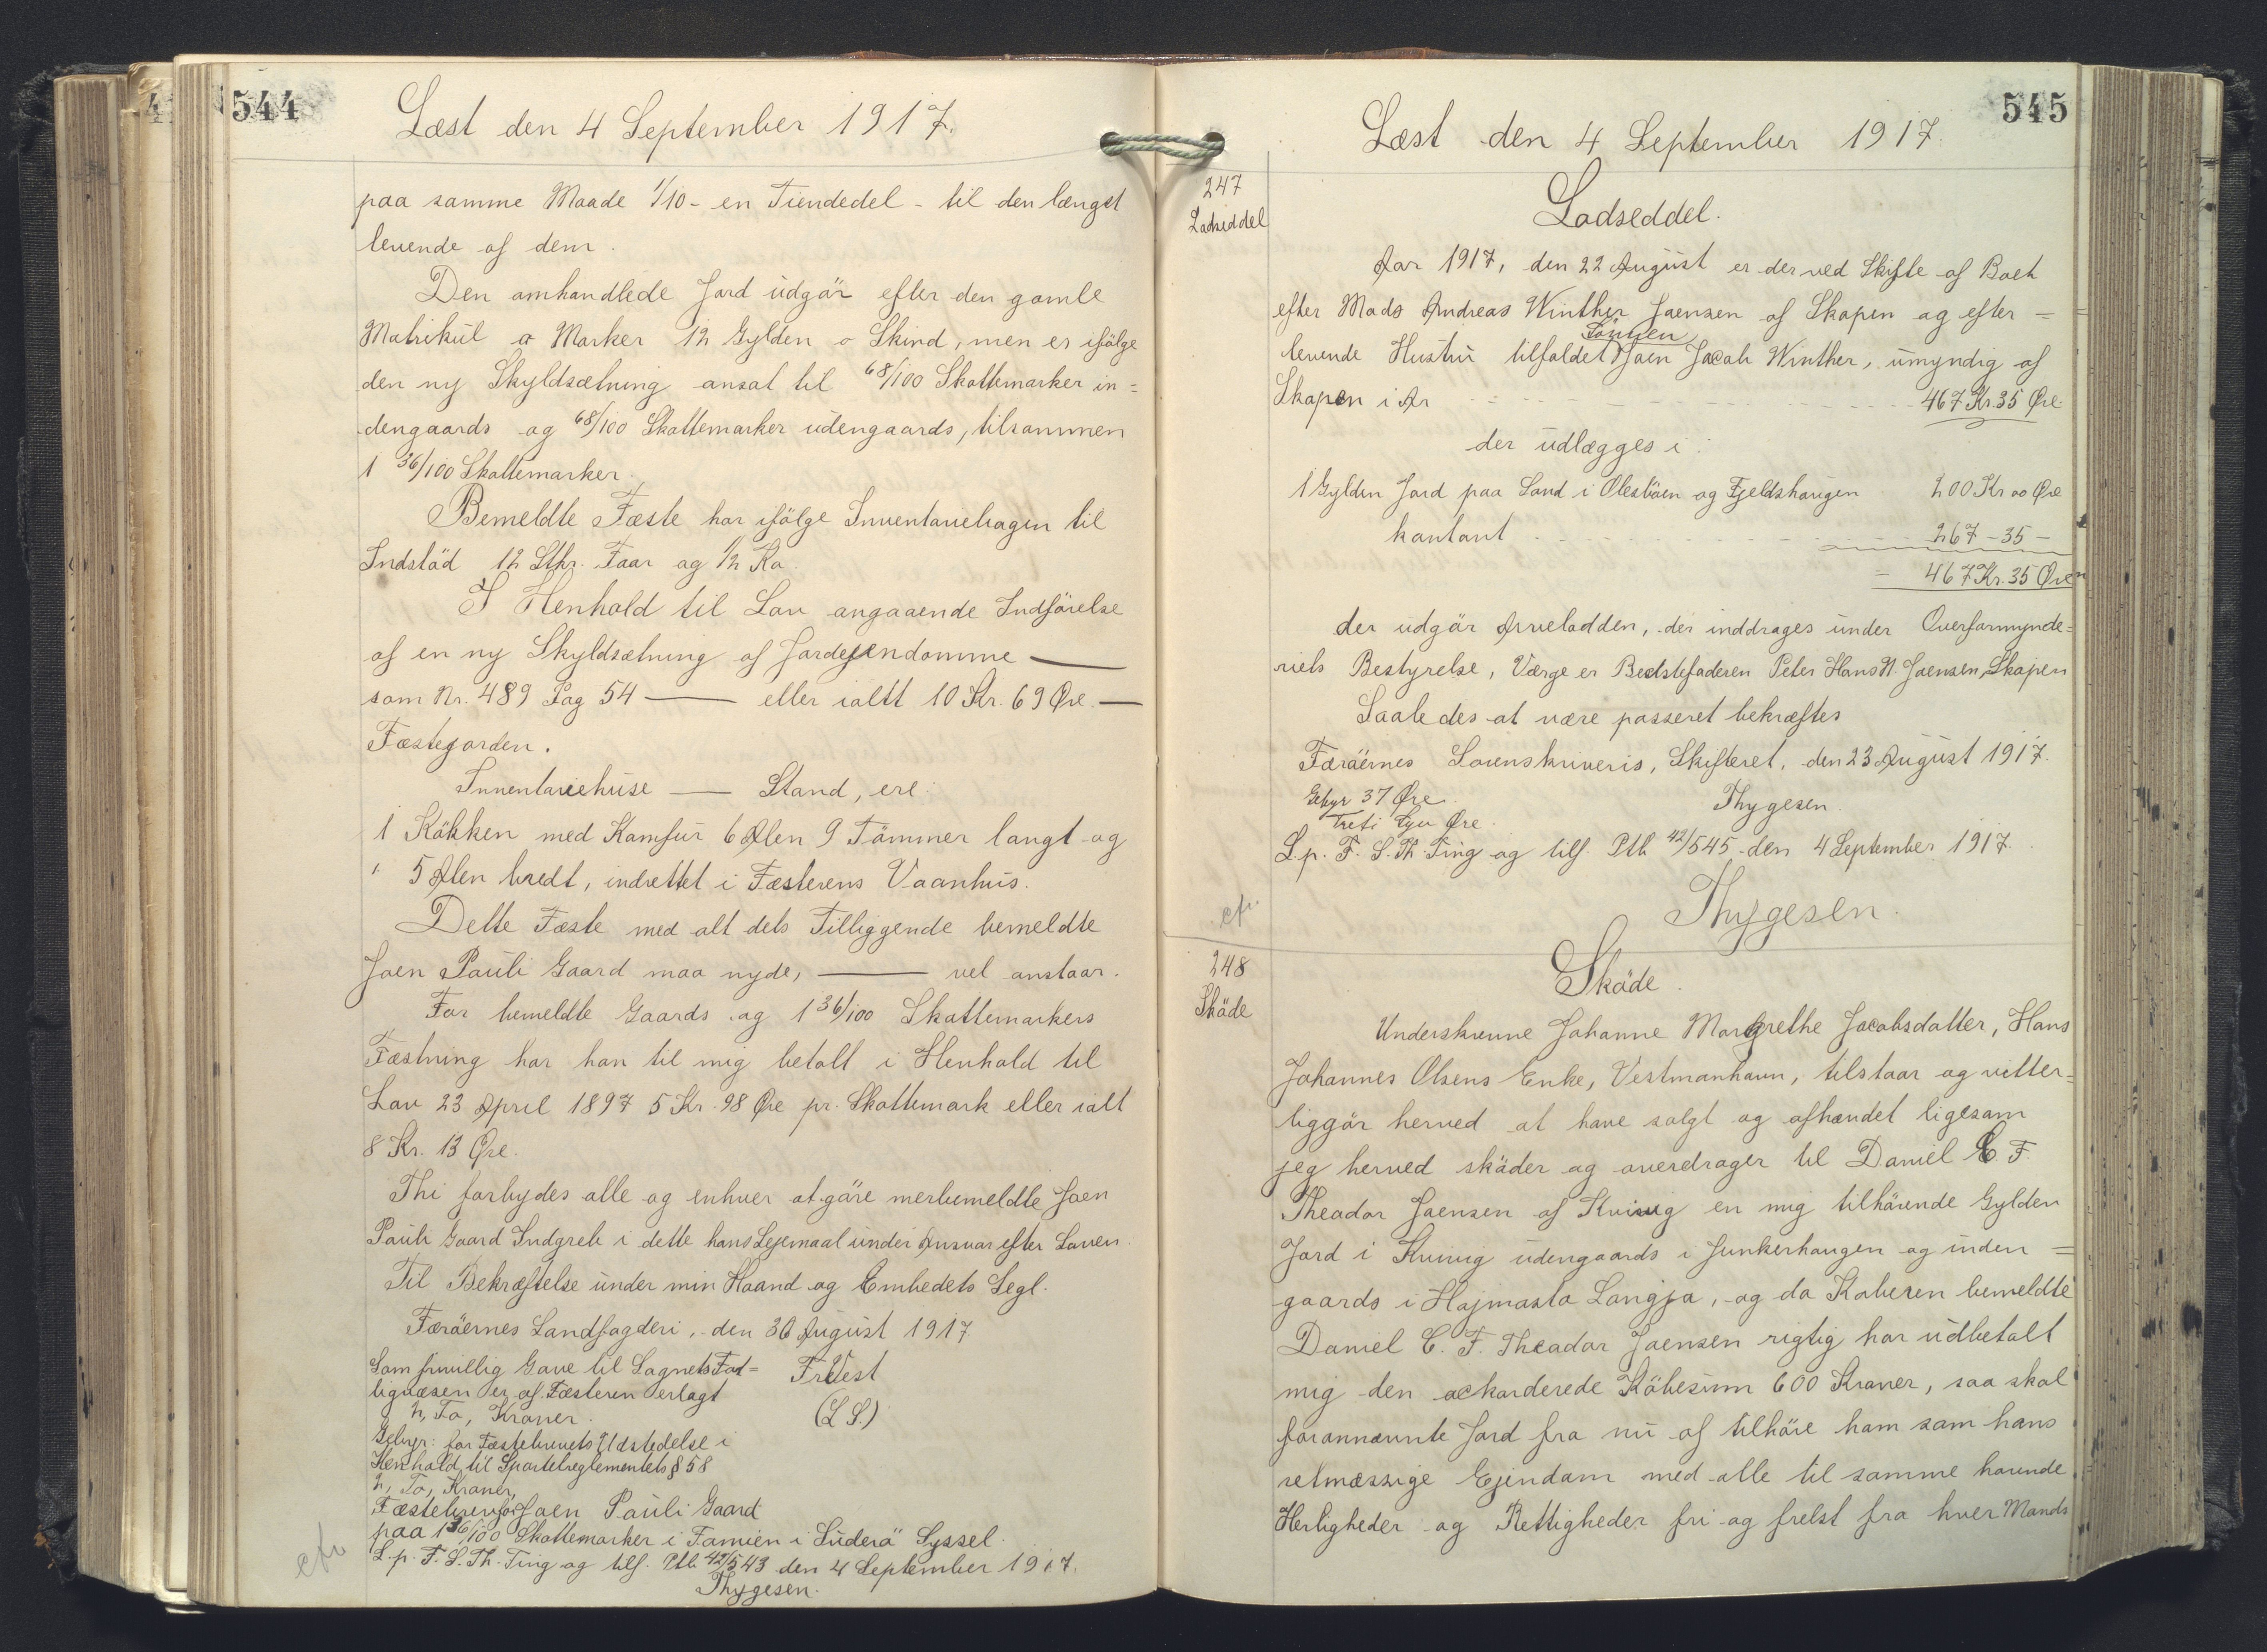 544
Læst den 4 September 1917.
paa samme Maade 1/10 - en Tiendedel - til den længst
levende af dem.
Den omhandlede Jord udgör efter den gamle
Matrikul o Marker 12 Gylden o Skind, men er ifölge
den ny Skyldsætning ansat til 68/100 Skattemarker in=
dengaards og 68/100 Skattemarker udengaards, tilsammen
1 36/100 Skattemarker.
Bemeldte Fæste har ifölge Inventariebogen til
Indstöd 12 Stkr. Faar og 1/2 Ko.
I Henhold til Lov angaaende Indförelse
af en ny Skyldsætning af Jordejendomme —
som Nr. 489 Pag 54 — eller ialtt 10 Kr. 69 Øre —
Fæstejorden.
Inventariehuse — Stand, ere:
1 Kökken med Kamfur 6 Alen 9 Tömmer langt og
" 5 Alen bredt, indrettet i Fæsterens Vaanhus.
Dette Fæste med alt dets Tilliggende bemeldte
Joen Pauli Gaard maa nyde, — vel anstaar.
For bemeldte Gaards og 1 36/100 Skattemarkers
Fæstning har han til mig betalt i Henhold til
Lov 23 April 1897 5 Kr. 98 Øre pr. Skattemark eller ialt
8 Kr. 13 Øre.
Thi forbydes alle og enhver at göre merbemeldte Joen
Pauli Gaard Indgreb i dette hans Lejemaal under Ansvar efter Loven.
Til Bekræftelse under min Haand og Embedets Segl.
Færöernes Landfogderi, den 30 August 1917
Som frivillig Gave til Sognets Fat= Fr Vest
tigvæsen er af Fæsteren erlagt
2, To, Kroner. (L S)
Gebyr: for Fæstebrevets Udstedelse i
Henhold til Sportelreglementets § 58
2, To, Kroner,
Fæstebrev for Joen Pauli Gaard
paa 1 36/100 Skattemarker i Famien i Suderö Syssel.
L. p. F. S. Th. Ting og tilf. Ptb 42/543 den 4 September 1917.
Thygesen.
cfr
545
Læst den 4 September 1917.
247
Lodseddel
Lodseddel.
Aar 1917, den 22 August er der ved Skifte af Boet
efter Mads Andreas Winther Joensen af Skopen og efter=
Sönnen
levende Hustru tilfaldet Joen Jacob Winther, umyndig af
Skopen i Arv 467 Kr. 35 Øre
der udlægges i:
1 Gylden Jord paa Sand i Olesböen og Fjeldshaugen 200 Kr oo Øre
kontant 267 - 35 -
= 467 Kr. 35 Øre
der udgör Arvelodden, der inddrages under Overformynde=
riets Bestyrelse, Værge er Bedstefaderen Peter Hans N. Joensen, Skopen
Saaledes at være passeret bekræftes
Færöernes Sorenskriveris, Skifteret, den 23 August 1917.
Gebyr 37 Øre. Thygesen.
Treti Syv Øre.
L. p. F. S. Th. Ting og tilf. Ptb 42/545 den 4 September 1917.
Thygesen.
cfr.
248
Sköde
Sköde.
Underskrevne Johanne Margrethe Jacobsdatter, Hans
Johannes Olsens Enke, Vestmanhavn, tilstaar og vitter=
liggör herved at have solgt og afhændet ligesom
jeg herved sköder og overdrager til Daniel C. F.
Theodor Joensen af Kvivig en mig tilhörende Gylden
Jord i Kvivig udengaards i Junkerhaugen og inden=
gaards i Hajmasta Langja, og da Köberen bemeldte
Daniel C. F. Theodor Joensen rigtig har udbetalt
mig den ackorderede Köbesum 600 Kroner, saa skal
forannævnte Jord fra nu af tilhöre ham som hans
retmæssige Ejendom med alle til samme havende
Herligheder og Rettigheder fri og frelst fra hver Mands